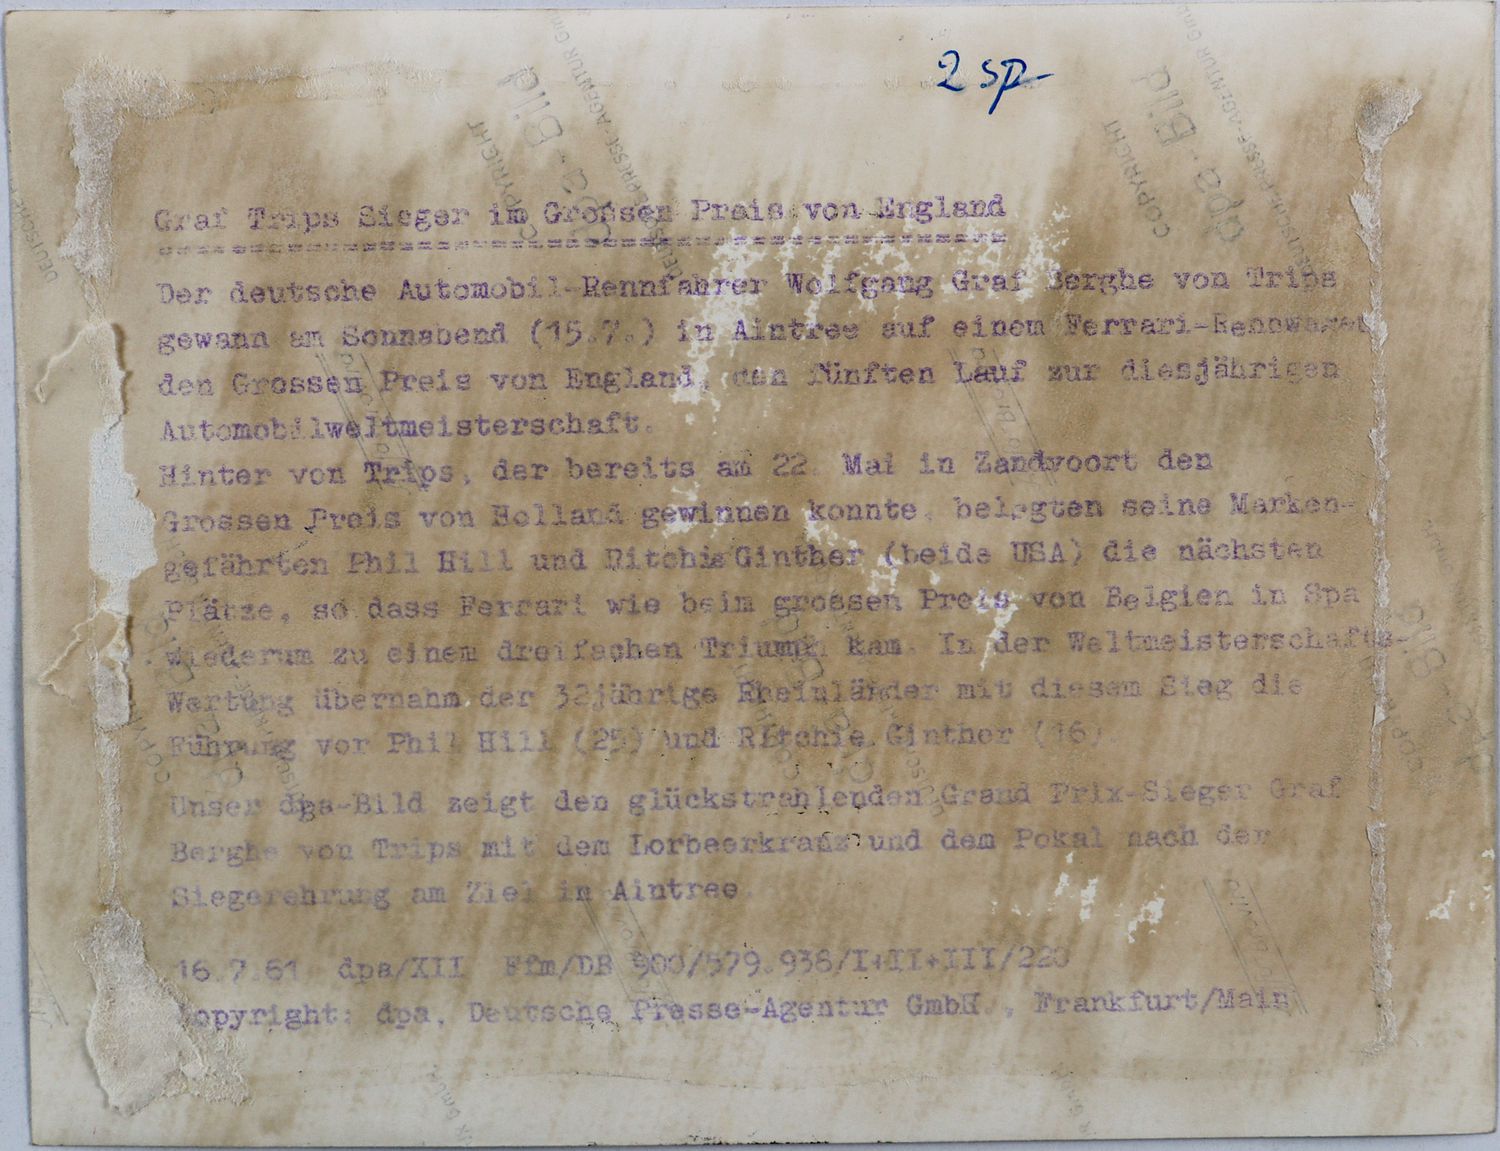 2 sp
Graf Trips Sieger im Grossen Preis von England
Der deutsche Automobil-Rennfahrer Wolfgang Graf Berghe von Trips
gewann am Sonnabend (15.7.) in Aintree auf einem Ferrari-Rennwagen
den Grossen Preis von England, den fünften Lauf zur diesjährigen
Automobilweltmeisterschaft.
Hinter von Trips, der bereits am 22. Mai in Zandvoort den
Grossen Preis von Holland gewinnen konnte, belegten seine Marken-
gefährten Phil Hill und Ritchie Ginther (beide USA) die nächsten
Plätze, so dass Ferrari wie beim grossen Preis von Belgien in Spa
wiederum zu einem dreifachen Triumph kam. In der Weltmeisterschafts-
Wertung übernahm der 32jährige Rheinländer mit diesem Sieg die
Führung vor Phil Hill (25) und Ritchie Ginther (16).
Unser dpa-Bild zeigt den glückstrahlenden Grand Prix-Sieger Graf
Berghe von Trips mit dem Lorbeerkranz und dem Pokal nach der
Siegerehrung am Ziel in Aintree.
16.7.61 dpa/XII Ffm/DB 900/579.938/I+II+III/220
Copyright: dpa, Deutsche Presse-Agentur GmbH., Frankfurt/Main
COPYRIGHT
dpa-Bild
DEUTSCHE PRESSE-AGENTUR GmbH
COPYRIGHT
dpa-Bild